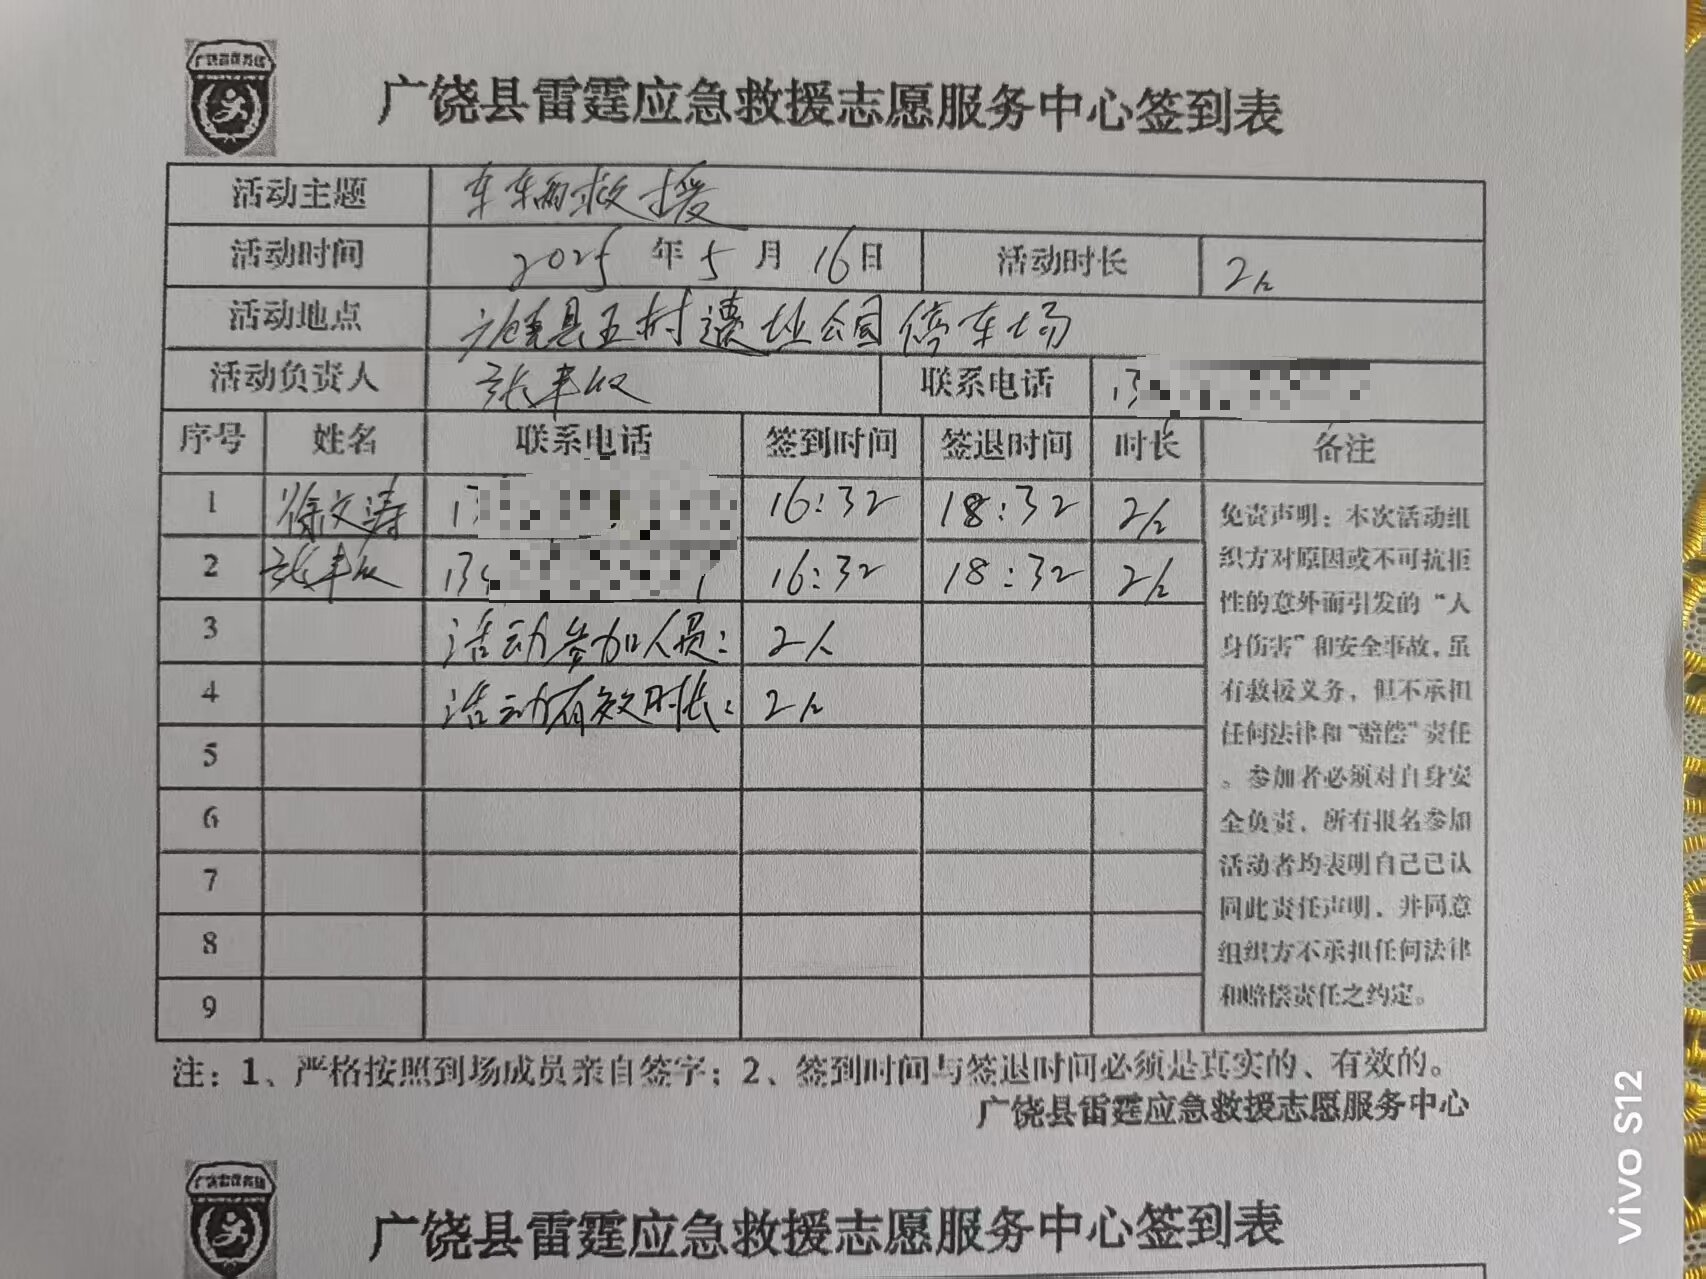 广饶县雷霆应急救援志愿服务中心签到表
活动主题 车辆救援
活动时间 2025年5月16日 活动时长 2h
活动地点 广饶县五村遗址公园停车场
活动负责人 张 联系电话 13
序号 姓名 联系电话 签到时间 签退时间 时长 备注
1 徐文涛 13 16:32 18:32 2h
2 张 13 16:32 18:32 2h
3 活动参加人员: 2人
4 活动有效时长: 2h
5
6
7
8
9
免责声明：本次活动组
织方对原因或不可抗拒
性的意外而引发的“人
身伤害”和安全事故，虽
有救援义务，但不承担
任何法律和“赔偿”责任
。参加者必须对自身安
全负责，所有报名参加
活动者均表明自己已认
同此责任声明，并同意
组织方不承担任何法律
和赔偿责任之约定。
注：1、严格按照到场成员亲自签字；2、签到时间与签退时间必须是真实的、有效的。
广饶县雷霆应急救援志愿服务中心
广饶县雷霆应急救援志愿服务中心签到表
vivo S12